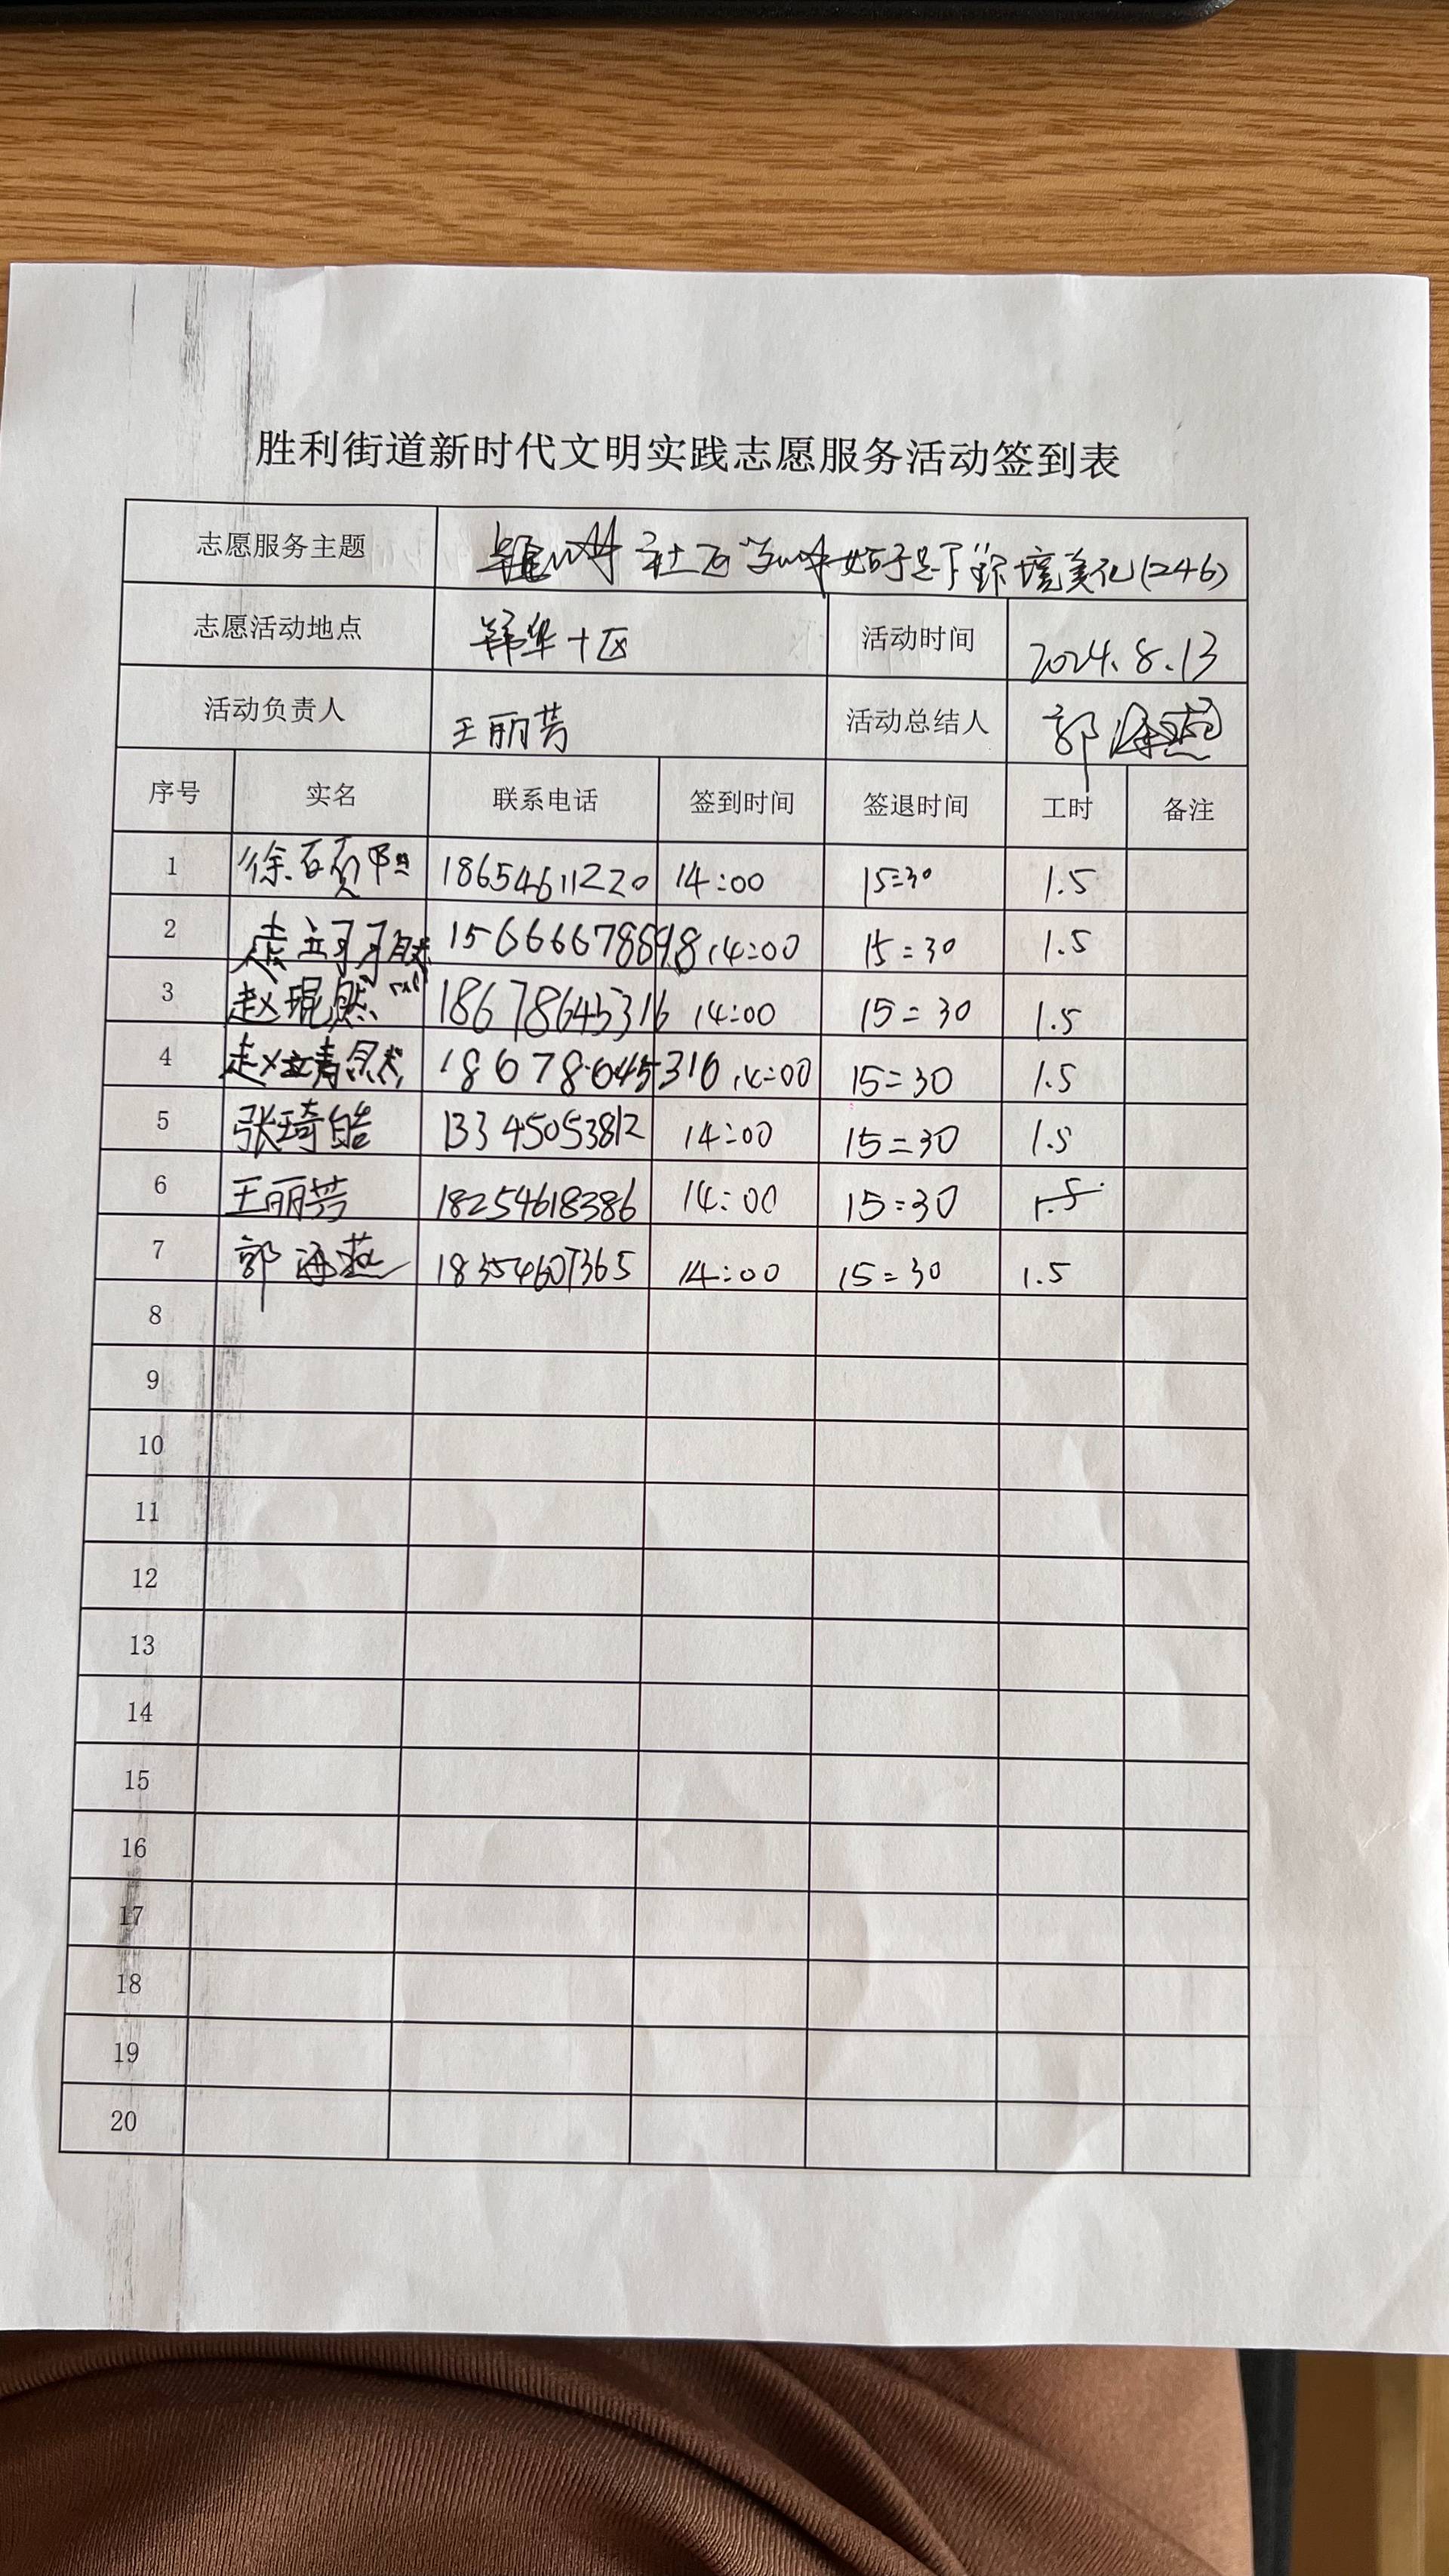 胜利街道新时代文明实践志愿服务活动签到表
志愿服务主题 社区 始于足下 环境美化(246)
志愿活动地点 锦华十区 活动时间 2024.8.13
活动负责人 王丽芳 活动总结人 郭海燕
序号 实名 联系电话 签到时间 签退时间 工时 备注
1 徐 18654611220 14:00 15=30 1.5
2 14:00 15=30 1.5
3 赵琨然 18678645316 14:00 15=30 1.5
4 赵 18678645316 14:00 15=30 1.5
5 张琦皓 13345053812 14:00 15=30 1.5
6 王丽芳 18254618386 14:00 15=30 1.5
7 郭海燕 18354607365 14:00 15=30 1.5
8
9
10
11
12
13
14
15
16
17
18
19
20